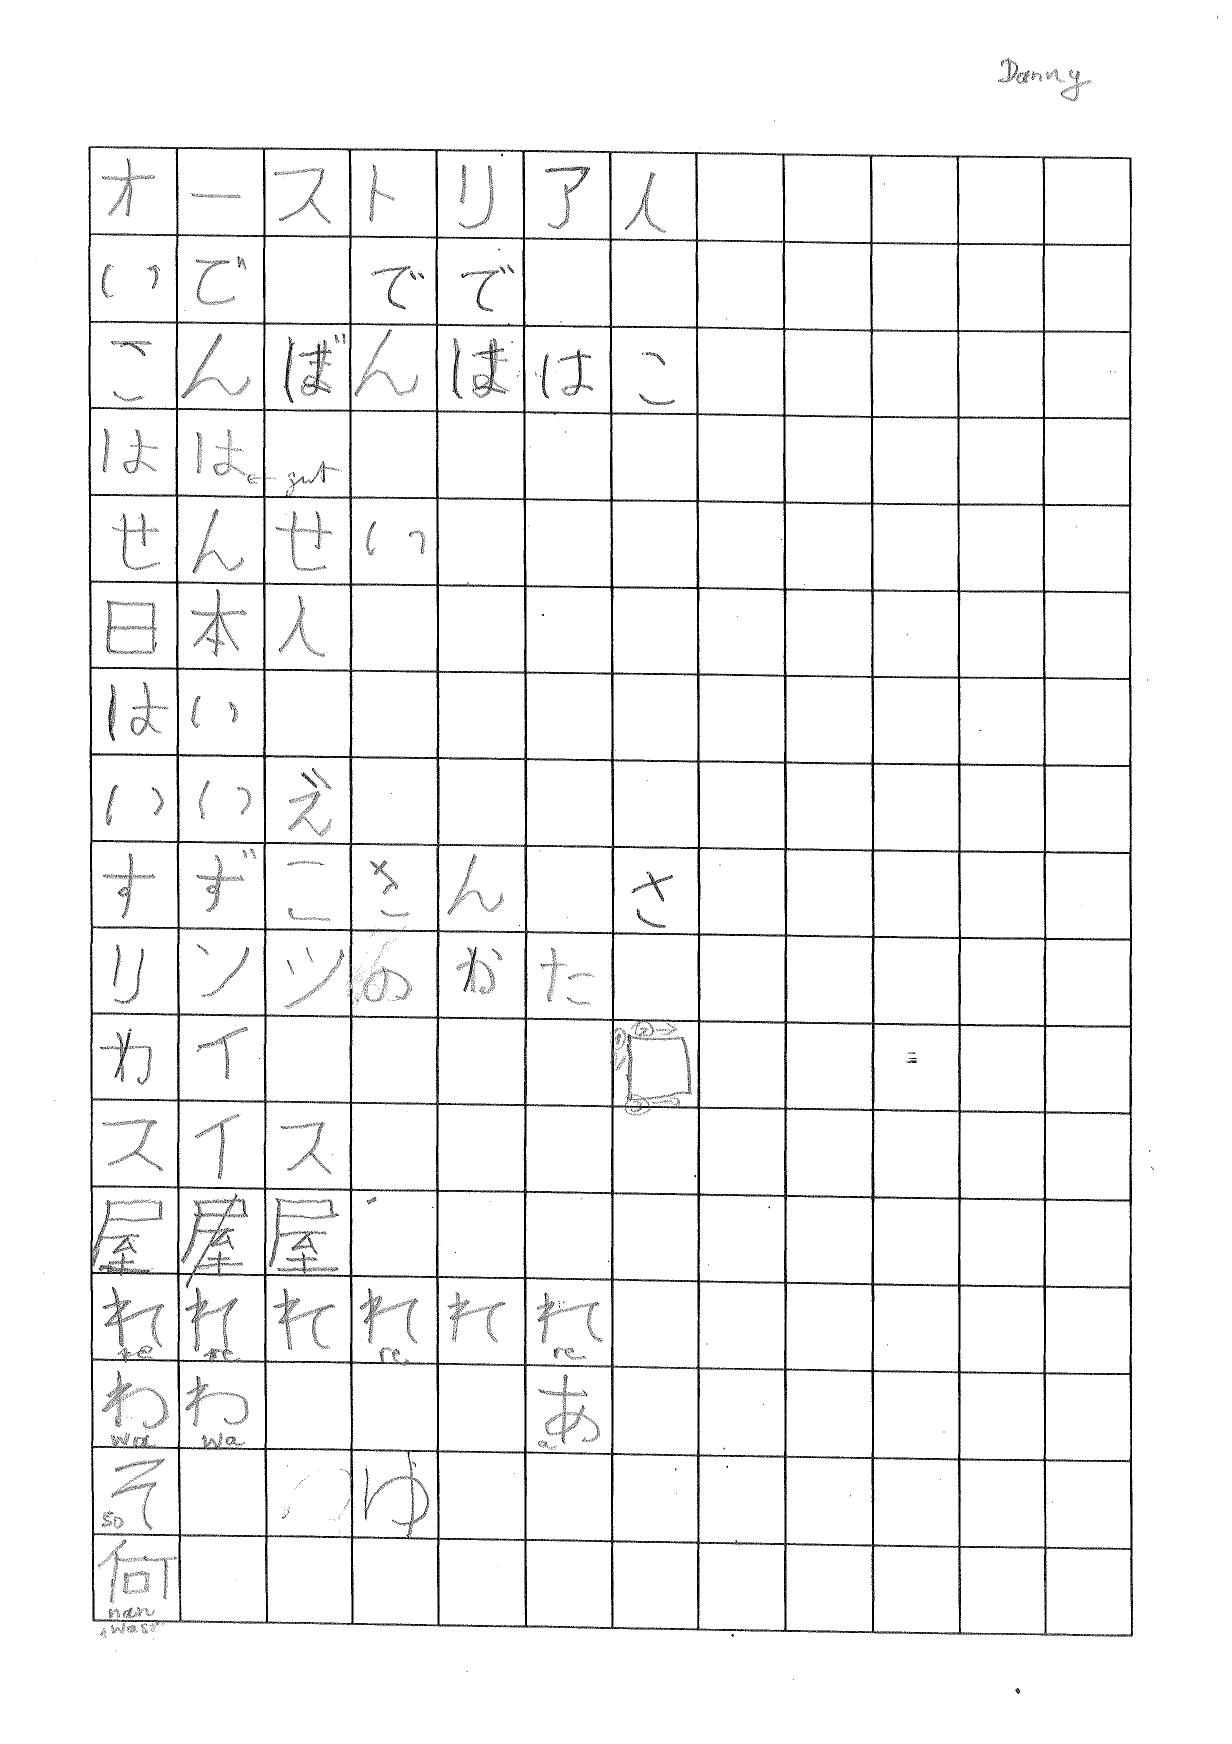 Danny
オーストリア人
いで でで
こんばんははこ
はは ← gut
せんせい
日本人
はい
いいえ
すずこさん さ
リンツのかた
わイ
② →
①
③ →
スイス
屋屋屋
れれれれれれ
re re re re
わわ あ
wa wa a
そ ゆ
so
何
nan
"was?"